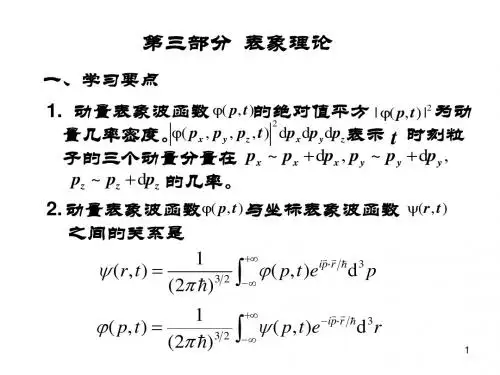 第三部分 表象理论
一、学习要点
1. 动量表象波函数 φ(p,t) 的绝对值平方 |φ(p,t)|² 为动
量几率密度。|φ(pₓ, p_y, p_z, t)|² dpₓdp_ydp_z 表示 t 时刻粒
子的三个动量分量在 pₓ ~ pₓ + dpₓ, p_y ~ p_y + dp_y,
p_z ~ p_z + dp_z 的几率。
2. 动量表象波函数 φ(p,t) 与坐标表象波函数 ψ(r,t)
之间的关系是
ψ(r,t) = 1/(2πħ)^{3/2} ∫_{-∞}^{+∞} φ(p,t)e^{ip⃗·r⃗/ħ} d³p
φ(p,t) = 1/(2πħ)^{3/2} ∫_{-∞}^{+∞} ψ(p,t)e^{-ip⃗·r⃗/ħ} d³r
1